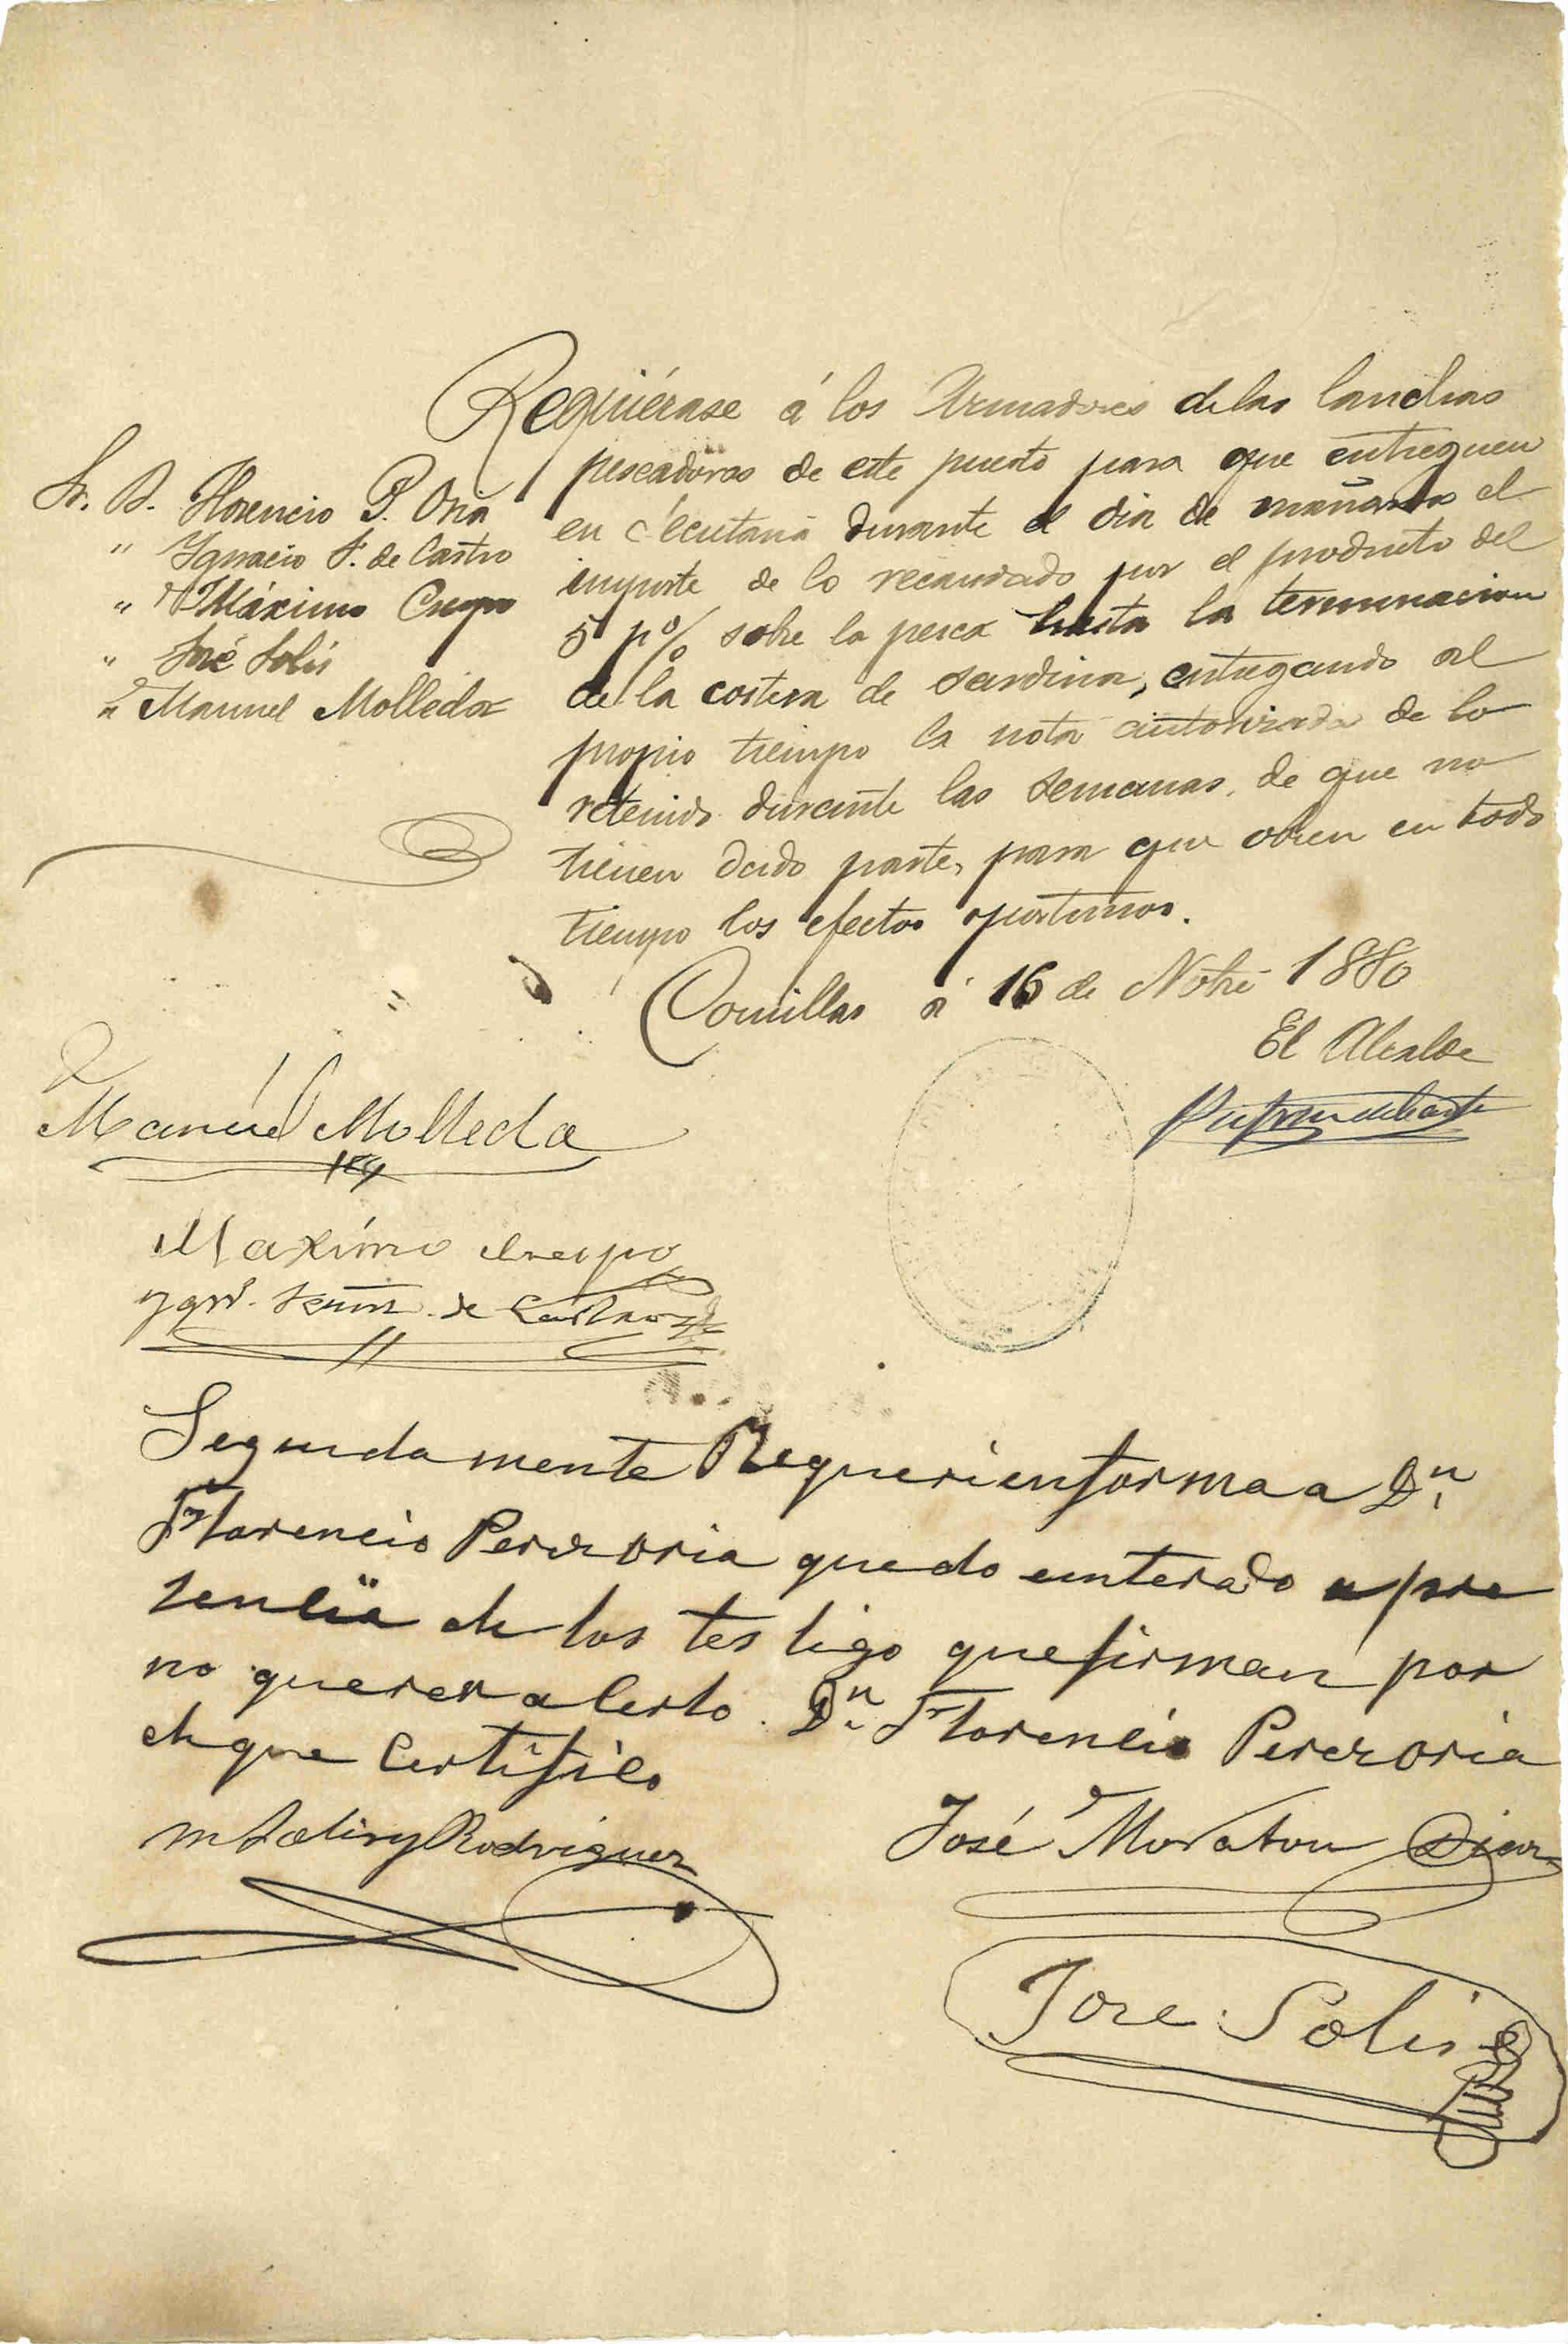 Requiérase á los Armadores de las lanchas
pescadoras de este puerto para que entreguen
en Secretaria durante el dia de mañana el
importe de lo recaudado por el producto del
5 p% sobre la pesca hasta la terminacion
de la costera de sardina, entregando al
propio tiempo la nota autorizada de lo
retenido durante las semanas, de que no
tienen dado parte, para que obren en todo
tiempo los efectos oportunos.
Comillas á 16 de Nobre 1880
El Alcalde
Sr. D. Florencio P. Oria
" Ygnacio F. de Castro
" Máximo Crespo
" José Solis
" Manuel Molleda
Manuel Molleda
Maximo Crespo
Ygn. de Castro
Segundamente Requeri enforma a Dn
Florencio Perez oria quedo eenterado a pre
sencia de los tes tigo que firman por
no querer a Cerlo. Dn Florencio Perez oria
de que Certifico
José Moraton Diaz
Rodriguez
Jose Solis